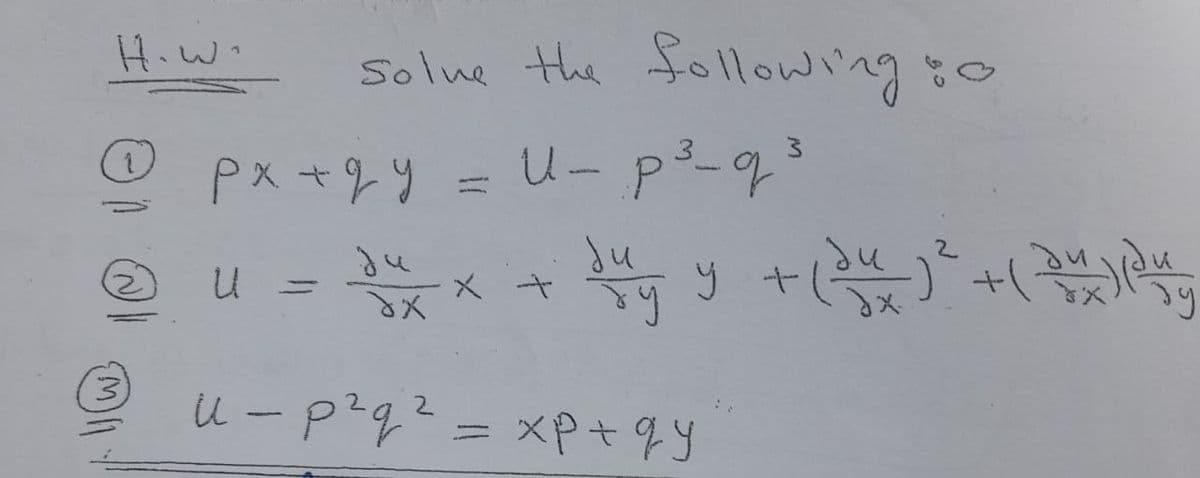 H.W.
Solve the following:
① px + qy = u - p³ - q³
② u = ∂u/∂x x + ∂u/∂y y + (∂u/∂x)² + (∂u/∂x)(∂u/∂y
③ u - p²q² = xp + qy